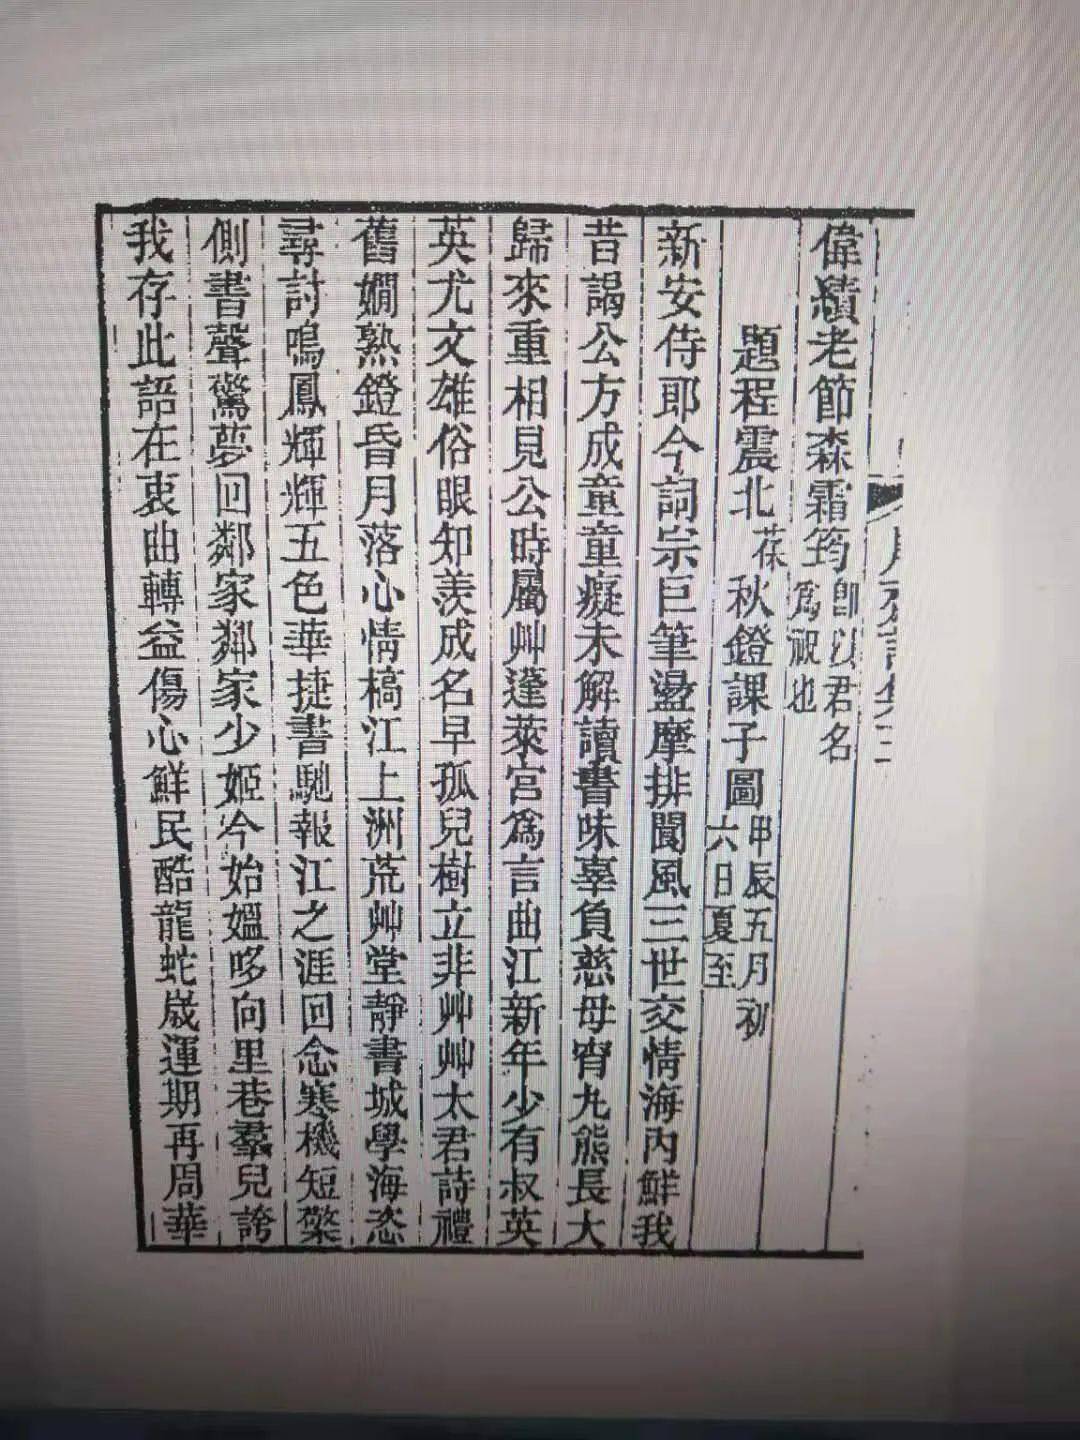 偉績老節森霜筠卽以君名
爲祝也
題程震北葆秋鐙課子圖甲辰五月初
六日夏至
新安侍郎今詞宗巨筆盪摩排閶風三世交情海內鮮我
昔謁公方成童童癡未解讀書味辜負慈母宵丸熊長大
歸來重相見公時屬艸蓬萊宮爲言曲江新年少有叔英
英尤文雄俗眼知羨成名早孤兒樹立非艸艸太君詩禮
舊嫺熟鐙昏月落心情槁江上洲荒艸堂靜書城學海恣
尋討鳴鳳輝輝五色華捷書馳報江之涯回念寒機短檠
側書聲驚夢回鄰家鄰家少姬今始媼哆向里巷羣兒誇
我存此語在衷曲轉益傷心鮮民酷龍蛇歲運期再周華